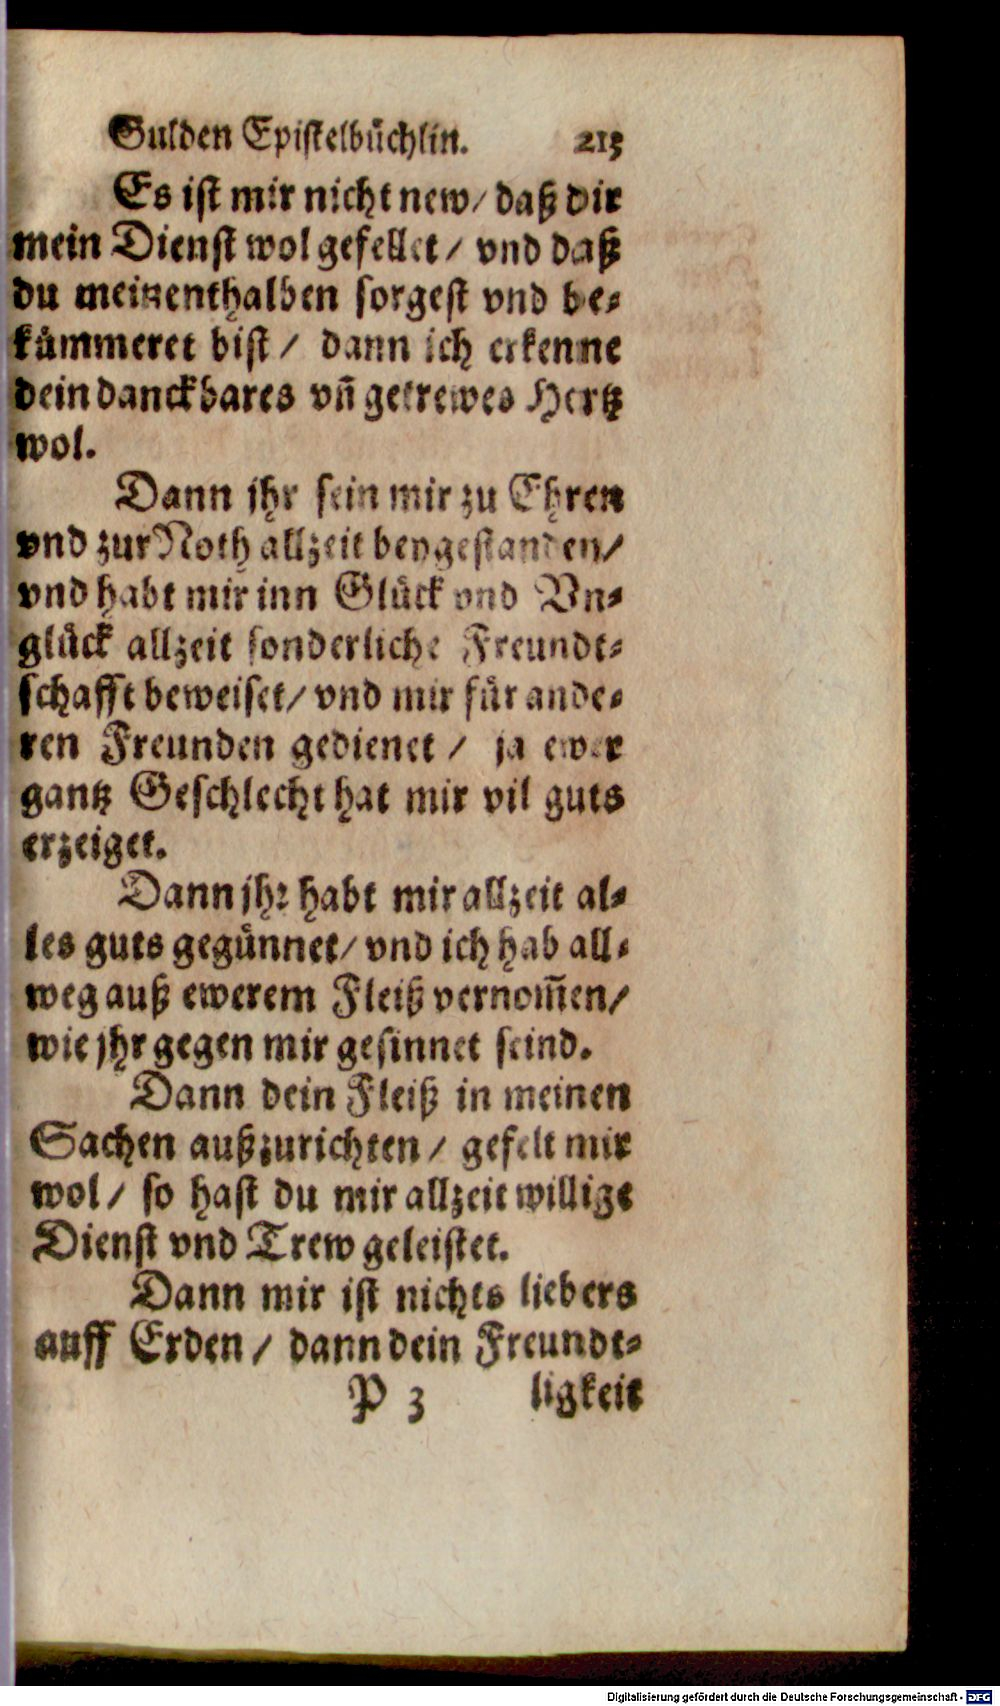 Gulden Epistelbüchlin. 215
Es ist mir nicht new/ daß dir
mein Dienst wol gefellet/ vnd daß
du meinenthalben sorgest vnd be-
kümmeret bist/ dann ich erkenne
dein danckbares vñ getrewes Hertz
wol.
Dann jhr sein mir zu Ehren
vnd zur Noth allzeit beygestanden/
vnd habt mir inn Glück vnd Vn-
glück allzeit sonderliche Freundt-
schafft beweiset/ vnd mir für ande-
ren Freunden gedienet/ ja ewer
gantz Geschlecht hat mir vil guts
erzeiget.
Dann jhr habt mir allzeit al-
les guts gegünnet/ vnd ich hab all-
weg auß ewerem Fleiß vernom̃en/
wie jhr gegen mir gesinnet seind.
Dann dein Fleiß in meinen
Sachen außzurichten/ gefelt mir
wol/ so hast du mir allzeit willige
Dienst vnd Trew geleistet.
Dann mir ist nichts liebers
auff Erden/ dann dein Freundt-
P 3 ligkeit
Digitalisierung gefördert durch die Deutsche Forschungsgemeinschaft - DFG